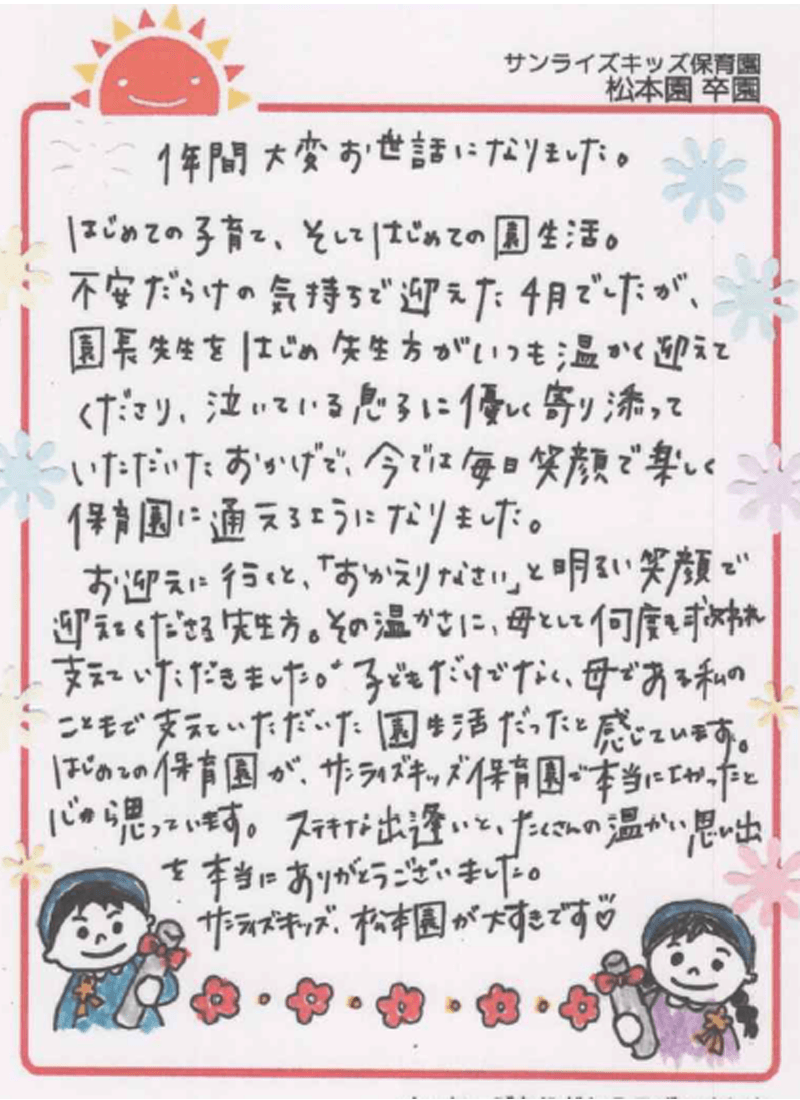 サンライズキッズ保育園
松本園 卒園
1年間大変お世話になりました。
はじめての子育て、そしてはじめての園生活。
不安だらけの気持ちで迎えた4月でしたが、
園長先生をはじめ先生方がいつも温かく迎えて
くださり、泣いている息子に優しく寄り添って
いただいたおかげで、今では毎日笑顔で楽しく
保育園に通えるようになりました。
お迎えに行くと、「おかえりなさい」と明るい笑顔で
迎えてくださる先生方。その温かさに、母として何度も救われ
支えていただきました。子どもだけでなく、母である私の
ことまで支えていただいた園生活だったと感じています。
はじめての保育園が、サンライズキッズ保育園で本当によかったと
心から思っています。ステキな出逢いと、たくさんの温かい思い出
を本当にありがとうございました。
サンライズキッズ、松本園が大すきです♡